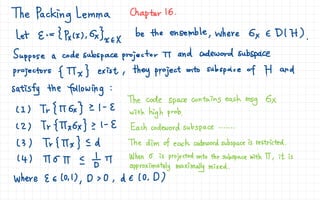 The Packing Lemma Chapter 16.
Let ℰ := {Pₓ(x), σₓ}ₓ∈X be the ensemble, where σₓ ∈ D(H).
Suppose a code subspace projector Π and codeword subspace
projectors {Πₓ} exist, they project onto subspace of H and
satisfy the following :
(1) Tr{Πσₓ} ≥ 1-ε The code space contains each msg σₓ
with high prob.
(2) Tr{Πₓσₓ} ≥ 1-ε Each codeword subspace ......
(3) Tr{Πₓ} ≤ d The dim of each codeword subspace is restricted.
(4) ΠσΠ ≤ 1/D Π When σ is projected onto the subspace with Π, it is
approximately maximally mixed.
where ε ∈ (0,1), D > 0, d ∈ (0, D)